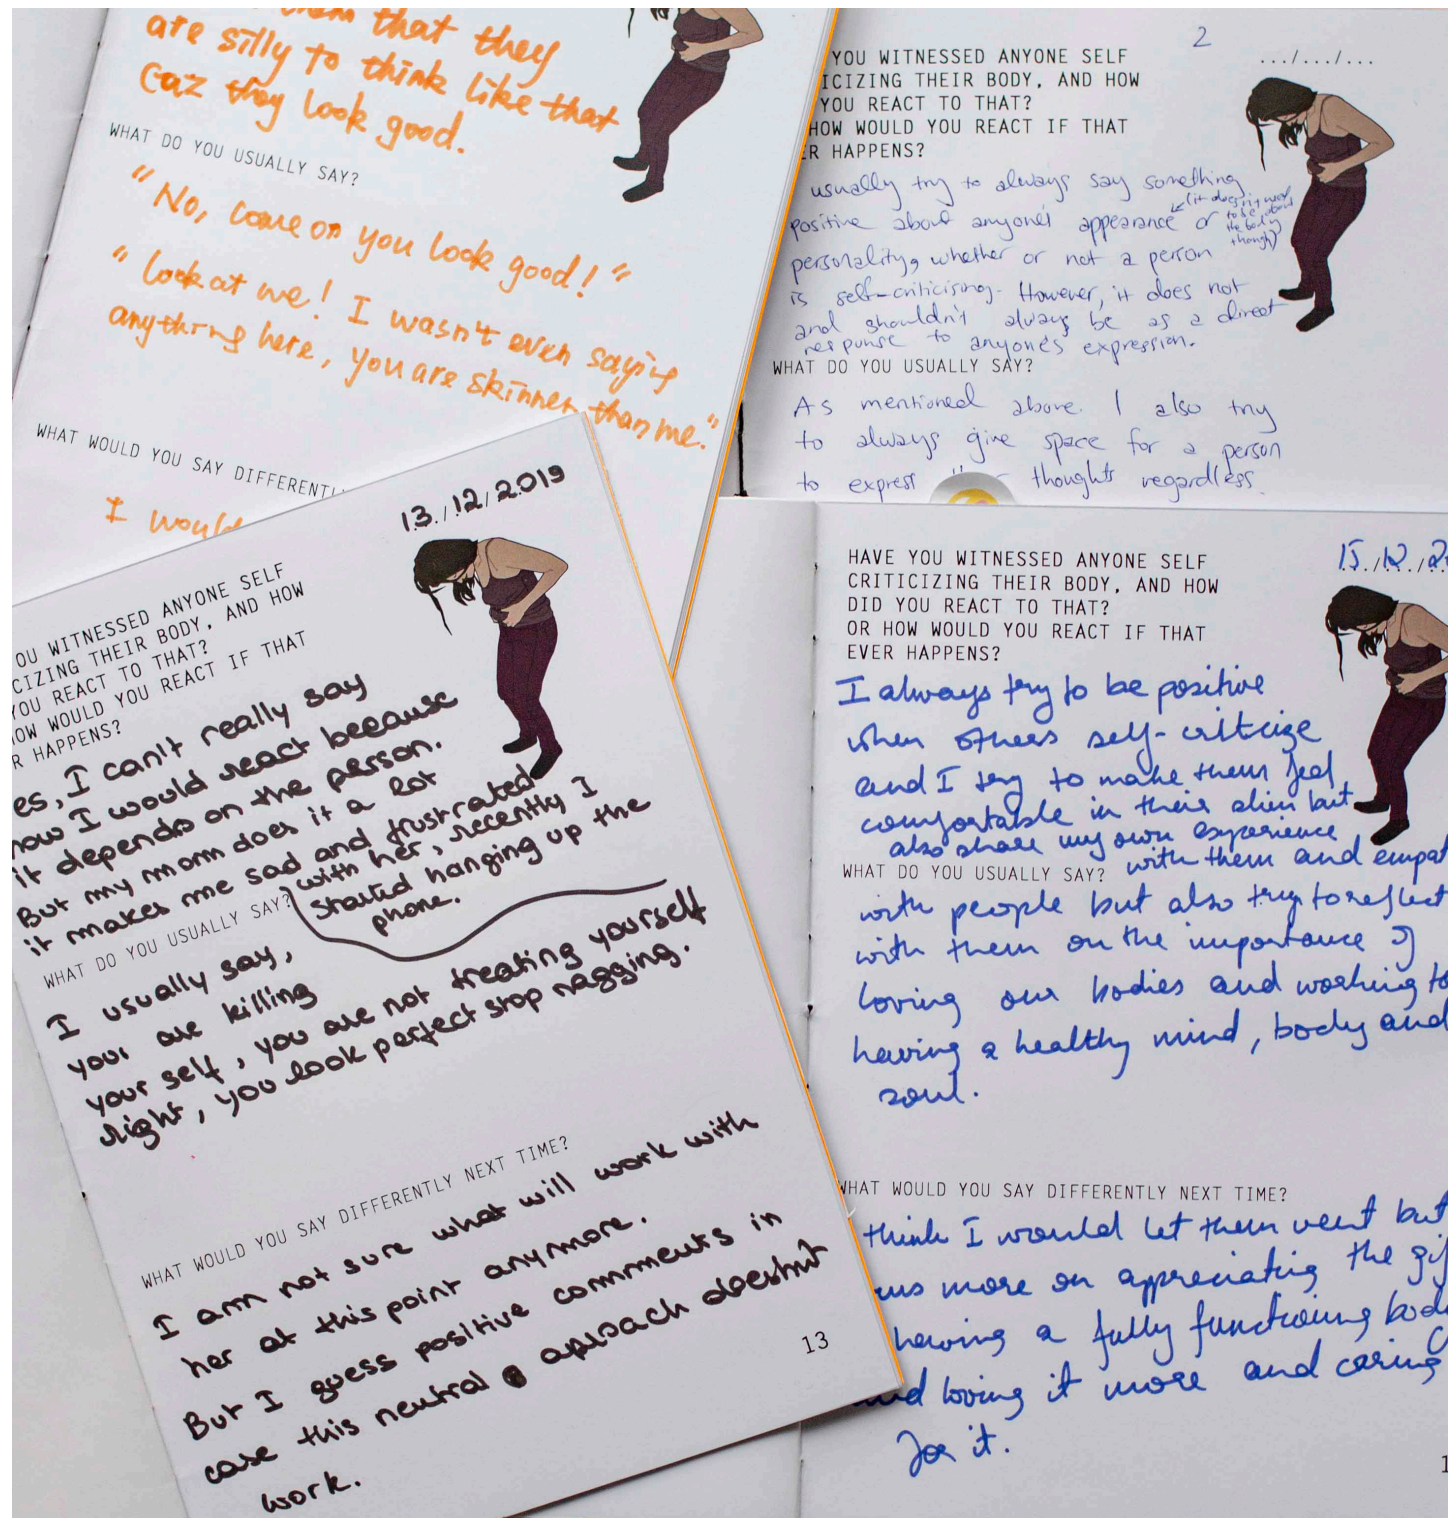 them that they
are silly to think like that
caz they look good.
WHAT DO YOU USUALLY SAY?
"No, come on you look good!"
"Look at me! I wasn't even saying
anything here, you are skinner than me."
WHAT WOULD YOU SAY DIFFERENTL
I would
2
.../.../...
YOU WITNESSED ANYONE SELF
ICIZING THEIR BODY, AND HOW
YOU REACT TO THAT?
HOW WOULD YOU REACT IF THAT
ER HAPPENS?
usually try to always say something
positive about anyone's appearance or
(it doesn't need
to be about
the body
though)
personality, whether or not a person
is self-criticising. However, it does not
and shouldn't always be as a direct
response to anyone's expression.
WHAT DO YOU USUALLY SAY?
As mentioned above. I also try
to always give space for a person
to express thoughts regardless.
13./12/2019
OU WITNESSED ANYONE SELF
CIZING THEIR BODY, AND HOW
YOU REACT TO THAT?
HOW WOULD YOU REACT IF THAT
R HAPPENS?
es, I can't really say
how I would react because
it depends on the person.
But my mom does it a lot
it makes me sad and frustrated
with her, recently I
started hanging up the
phone.
WHAT DO YOU USUALLY SAY?
I usually say,
your are killing
your self, you are not treating yourself
right, you look perfect stop nagging.
WHAT WOULD YOU SAY DIFFERENTLY NEXT TIME?
I am not sure what will work with
her at this point anymore.
But I guess positive comments in
case this neutral aproach doesnt
work.
13
HAVE YOU WITNESSED ANYONE SELF
CRITICIZING THEIR BODY, AND HOW
DID YOU REACT TO THAT?
OR HOW WOULD YOU REACT IF THAT
EVER HAPPENS?
15./12./2
I always try to be positive
when others self-criticize
and I try to make them feel
comfortable in their skin but
also share my own experience
WHAT DO YOU USUALLY SAY?
with them and empat
with people but also try to reflect
with them on the importance of
loving our bodies and working to
having a healthy mind, body and
soul.
WHAT WOULD YOU SAY DIFFERENTLY NEXT TIME?
think I would let them vent but
us more on appreciating the gif
having a fully functioning bod
nd loving it more and caring
for it.
1